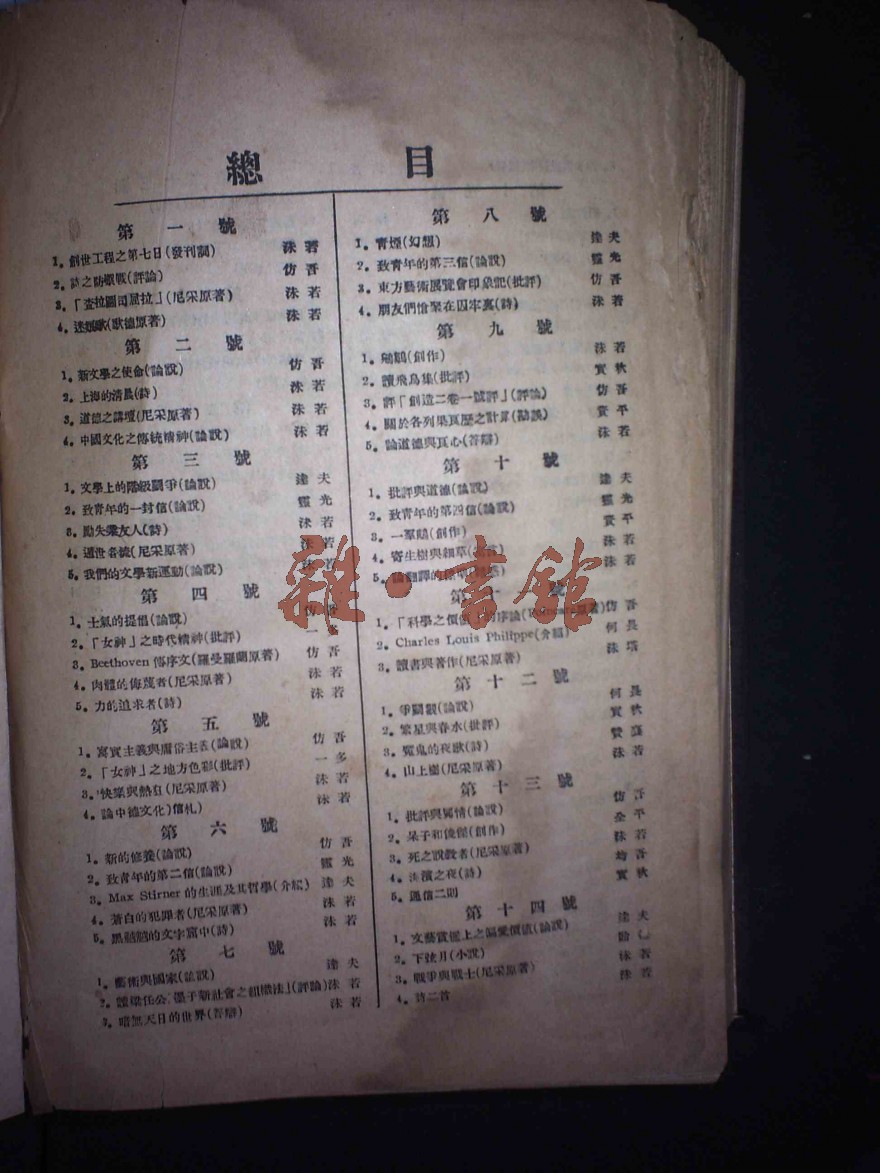 總目
第一號
1. 創世工程之第七日(發刊詞) 沫若
2. 詩之防禦戰(評論) 仿吾
3. 「查拉圖司屈拉」(尼采原著) 沫若
4. 迷娘歌(歌德原著) 沫若
第二號
1. 新文學之使命(論說) 仿吾
2. 上海的清晨(詩) 沫若
3. 道德之講壇(尼采原著) 沫若
4. 中國文化之傳統精神(論說) 沫若
第三號
1. 文學上的階級鬪爭(論說) 達夫
2. 致青年的一封信(論說) 靈光
3. 勵失業友人(詩) 沫若
4. 遯世者流(尼采原著) 沫若
5. 我們的文學新運動(論說) 沫若
第四號
1. 士氣的提倡(論說) 仿吾
2. 「女神」之時代精神(批評) 一多
3. Beethoven傳序文(羅曼羅蘭原著) 仿吾
4. 肉體的侮蔑者(尼采原著) 沫若
5. 力的追求者(詩) 沫若
第五號
1. 寫實主義與庸俗主義(論說) 仿吾
2. 「女神」之地方色彩(批評) 一多
3. 快樂與熱狂(尼采原著) 沫若
4. 論中德文化)信札) 沫若
第六號
1. 新的修養(論說) 仿吾
2. 致青年的第二信(論說) 靈光
3. Max Stirner的生涯及其哲學(介紹) 達夫
4. 蒼白的犯罪者(尼采原著) 沫若
5. 黑魆魆的文字窟中(詩) 沫若
第七號
1. 藝術與國家(論說) 達夫
2. 讀梁任公「墨子新社會之組織法」(評論) 沫若
3. 暗無天日的世界(答辯) 沫若
第八號
1. 青煙(幻想) 達夫
2. 致青年的第三信(論說) 靈光
3. 東方藝術展覽會印象記(批評) 仿吾
4. 朋友們愴聚在囚牢裏(詩) 沫若
第九號
1. (創作) 沫若
2. 讀飛鳥集(批評) 實秋
3. 評「創造二卷一號評」(評論) 仿吾
4. 關於各列果頁歷之計算 資平
5. 論道德與良心(答辯) 沫若
第十號
1. 批評與道德(論說) 達夫
2. 致青年的第四信(論說) 靈光
3. 一羣鵝(創作) 資平
4. 寄生樹與細草 沫若
5. 論翻譯的標準 沫若
第十一號
1. 「科學之價值」的序論(Poincaré原著) 仿吾
2. Charles Louis Philippe(介紹) 何畏
3. 讀書與著作(尼采原著) 沫若
第十二號
1. 爭鬪觀(論說) 何畏
2. 繁星與春水(批評) 實秋
3. 冤鬼的夜歌(詩)
4. 山上樹(尼采原著) 沫若
第十三號
1. 批評與同情(論說) 仿吾
2. 呆子和俊傑(創作) 全平
3. 死之說教者(尼采原著) 沫若
4. 海濱之夜(詩)
5. 通信二則 實秋
第十四號
1. 文藝賞鑑上之偏愛價值(論說) 達夫
2. 下弦月(小說)
3. 戰爭與戰士(尼采原著) 沫若
4. 詩二首 沫若
雜·書館